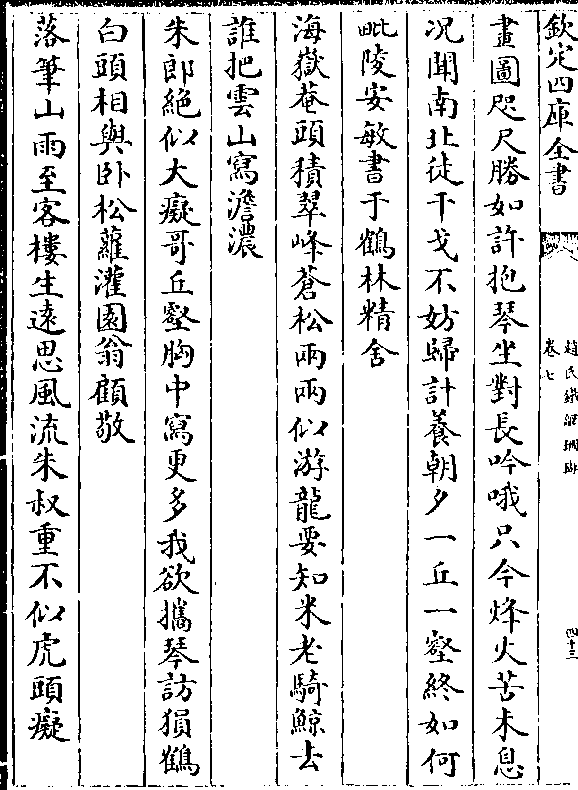 欽定四庫全書
趙氏鐵網珊瑚
卷七
四十三
畫圖咫尺勝如許抱琴坐對長吟哦只今烽火苦未息
况聞南北徒干戈不妨歸計養朝夕一丘一壑終如何
毗陵安敏書于鶴林精舍
海嶽菴頭積翠峰蒼松兩兩似游龍要知米老騎鯨去
誰把雲山寫澹濃
朱郎絶似大癡哥丘壑胸中寫更多我欲攜琴訪猿鶴
白頭相與卧松蘿灌園翁顧敬
落筆山雨至客樓生遠思風流朱叔重不似虎頭癡